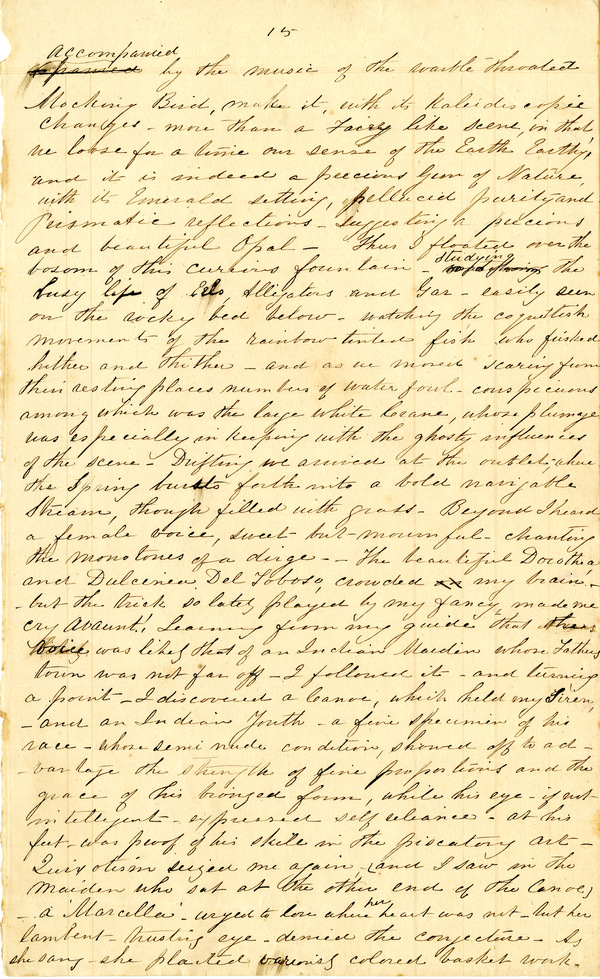 15
accompanied
by the music of the warble throated
Mocking Bird, make it, with its Kaleidescopic
changes - more than a Fairy like scene, in that
we loose for a time our sense of the Earth Earthy,
and it is indeed a precious Gem of Nature,
with its Emerald setting, pellucid purity and
Prismatic reflections - suggesting a precious
and beautiful Opal - Thus I floated over the
studying
bosom of this curious fountain - the
busy life of Eels, Alligators and Gar - easily seen
on the rocky bed below - watching the coquettish
movements of the rainbow tinted fish who frisked
hither and thither - and as we moved scaring from
their resting places numbers of water fowl - conspicuous
among which was the large white Crane, whose plumage
was especially in keeping with the ghostly influences
of the scene - Drifting we arrived at the outlet, where
the Spring bursts forth into a bold navigable
Stream, though filled with grass - Beyond I heard
a female voice, sweet - but - mournful - chanting
the monotones of a dirge - - The beautiful Dorothea
and Dulcinea Del Toboso, crowded my brain -
- but the trick so lately played by my fancy made me
cry Avaunt! Learning from my guide that
voice was likely that of an Indian Maiden whose Fathers
town was not far off - I followed it - and turning
a point - I discovered a Canoe, which held my Siren,
- and an Indian Youth - a fine specimen of his
race - whose semi nude condition, showed off to ad-
-vantage the strength of fine proportions and the
grace of his bronzed form, while his eye - if not
intelligent - expressed self reliance - at his
feet - was proof of his skill in the piscatory art -
Quixotism seized me again, and I saw in the
Maiden who sat at the other end of the Canoe,
- a 'Marcella' - urged to love where her heart was not - but her
lambent - trusting eye - denied the conjecture - As
she sang - she plaited variously colored basket work -